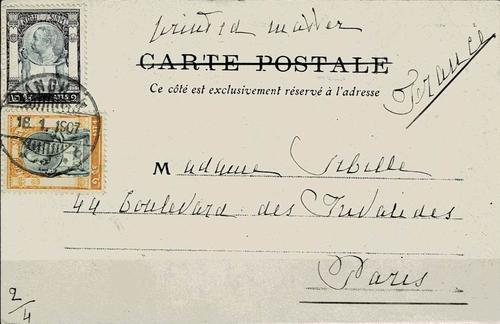 printed matter
CARTE POSTALE
Ce côté est exclusivement réservé à l'adresse
France
18.1.1907
Madame Sibille
44 Boulevard des Invalides
Paris
2/4